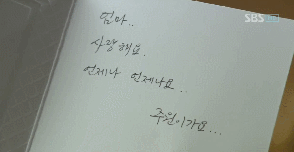 SBS
엄마..
사랑해요.
언제나 언제나요..
주원이가요...